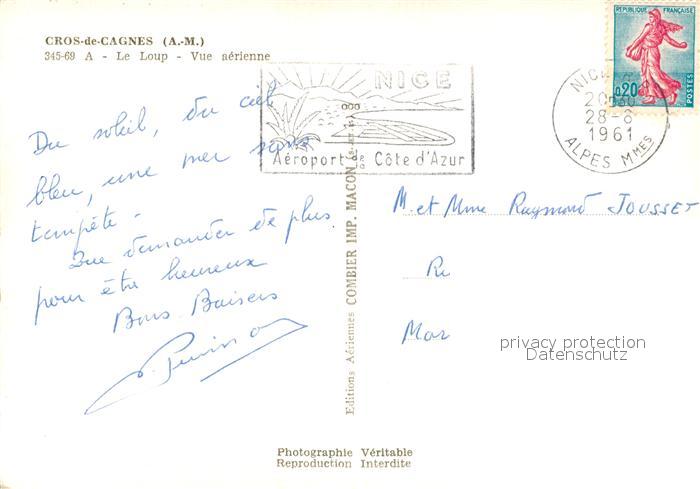 CROS-de-CAGNES (A.-M.)
345-69 A - Le Loup - Vue aérienne
Du soleil, du ciel
bleu, une mer sans
tempête -
Que demander de plus
pour être heureux
Bons Baisers
NICE
Aéroport Côte d'Azur
Editions Aériennes COMBIER IMP. MACON
REPUBLIQUE FRANÇAISE
0,20
POSTES
NICE
28-8
1961
ALPES MMES
M. et Mme Raymond JOUSSET
privacy protection
Datenschutz
Photographie Véritable
Reproduction Interdite